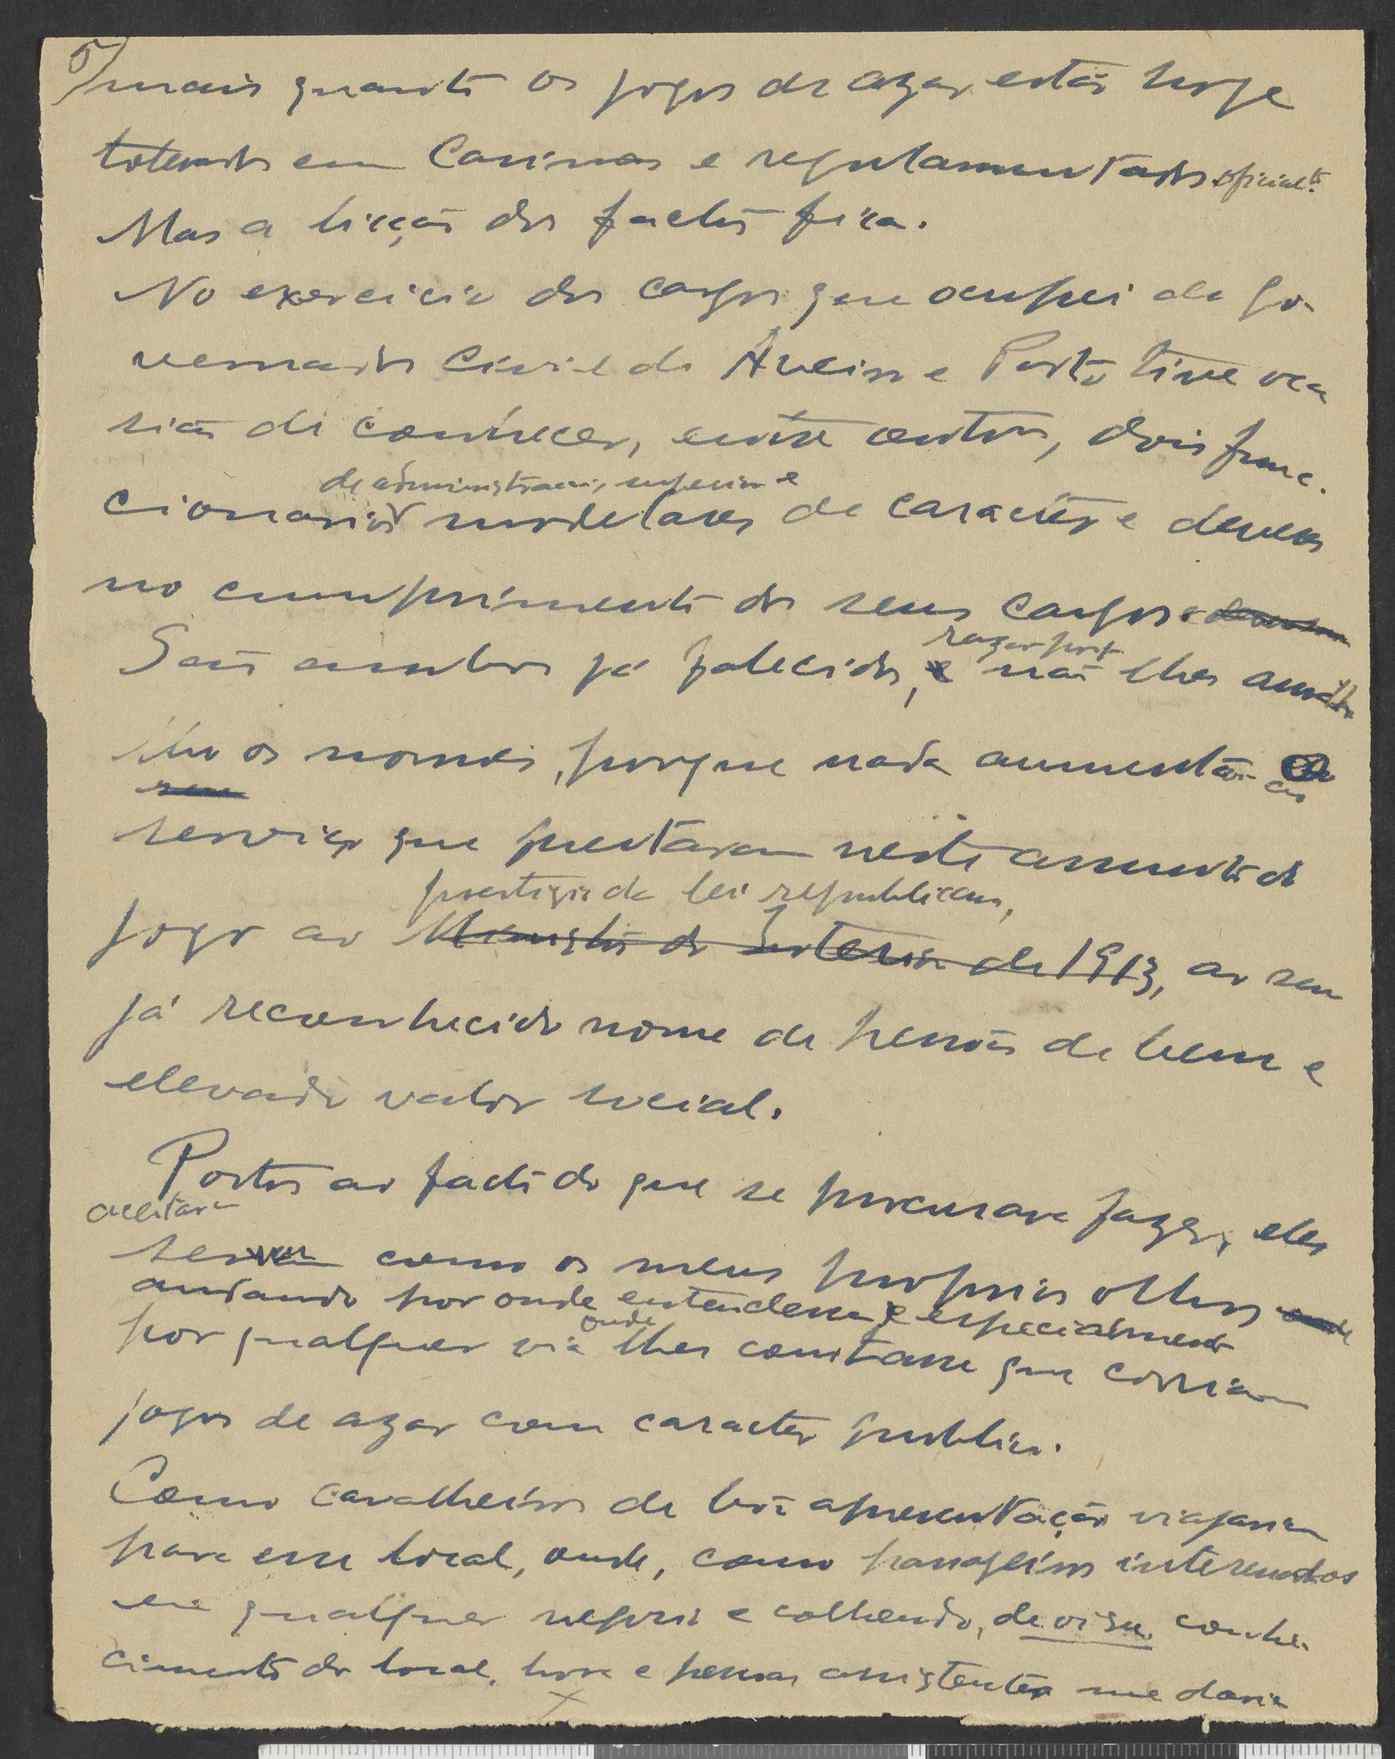 5)
mais quanto os jogos de azar estão hoje
tolerados em Casinos e regulamentados oficialte.
Mas a licção dos factos fica.
No exercicio dos cargos que ocupei de go-
vernador civil de Aveiro e Porto tive oca
sião de conhecer, entre outros, dois func.
de administração superior e
cionarios modelares de caracter e deveres
no cumprimento dos seus cargos.
São ambos já falecidos, razão porq não lhes
os nomes, porque nada aumentão
ao
seu
serviço que prestaram neste assunto de
prestigio da lei republicana,
jogo ao Ministro do Interior de 1913, ao seu
já reconhecido nome de pessoas de bem e
elevado valor social.
Postos ao facto do que se procurava fazer, eles
aceitaram
ser como os meus proprios olhos
andando por onde entendessem e especialmente
por qualquer via onde lhes constasse que corriam
jogos de azar com caracter publico.
Como cavalheiros de boa apresentação viajariam
para esse local, onde, como passageiros interessados
em qualquer negocio e colhendo, de visu, conhe-
cimento do local, hora e pessoas assistentes me daria